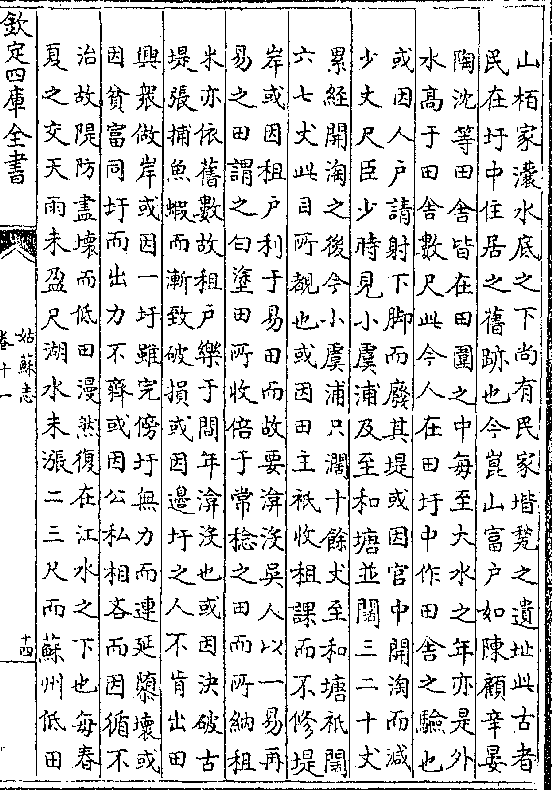 山栢家瀼水底之下尚有民家堦甃之遺址此古者
民在圩中住居之舊跡也今崑山富戶如陳顧辛晏
陶沈等田舍皆在田圍之中每至大水之年亦是外
水髙于田舍數尺此今人在田圩中作田舍之驗也
或因人戶請射下脚而廢其堤或因官中開淘而減
少丈尺臣少時見小虞浦及至和塘並闊三二十丈
累經開淘之後今小虞浦只濶十餘丈至和塘祇闊
六七丈此目所覩也或因田主祇收租課而不修堤
岸或因租戶利于易田而故要渰沒吳人以一易再
易之田謂之白塗田所收倍于常稔之田而所納租
米亦依舊數故租戶樂于間年渰沒也或因決破古
堤張捕魚蝦而漸致破損或因邉圩之人不肯出田
與衆做岸或因一圩雖完傍圩無力而連延隳壞或
因貧富同圩而出力不齊或因公私相吝而因循不
治故隄防盡壞而低田漫然復在江水之下也每春
夏之交天雨未盈尺湖水未漲二三尺而蘇州低田
欽定四庫全書
姑蘇志
卷十一
十四